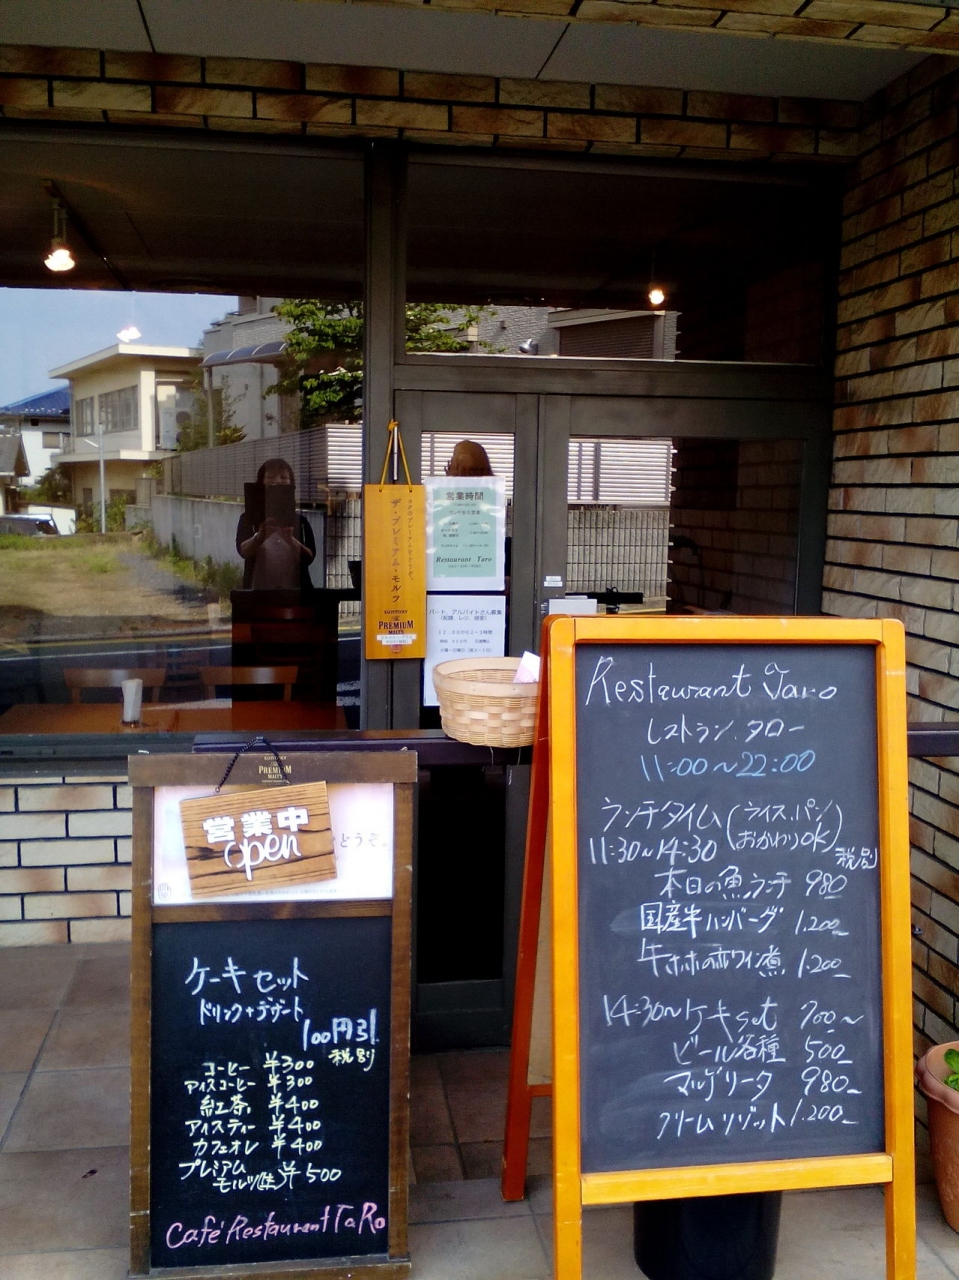 営業時間
Restaurant Taro
コクのプレミアムをどうぞ。
ザ・プレミアム・モルツ
SUNTORY
THE
PREMIUM
MALT'S
パート、アルバイトさん募集
(配膳、レジ、接客)
THE
PREMIUM
MALT'S
営業中
Open
どうぞ。
ケーキセット
ドリンク+デザート
100円引
税別
コーヒー ¥300
アイスコーヒー ¥300
紅茶 ¥400
アイスティー ¥400
カフェオレ ¥400
プレミアム
モルツ(生) ¥500
Café Restaurant TaRo
Restaurant Taro
レストラン.タロー
11:00~22:00
ランチタイム (ライス.パン
11:30~14:30 おかわりOK)
税別
本日の魚ランチ 980
国産牛ハンバーグ 1.200
牛ホホの赤ワイン煮 1.200
14:30~ケーキset 700~
ビール各種 500
マルゲリータ 980
クリームリゾット 1.200